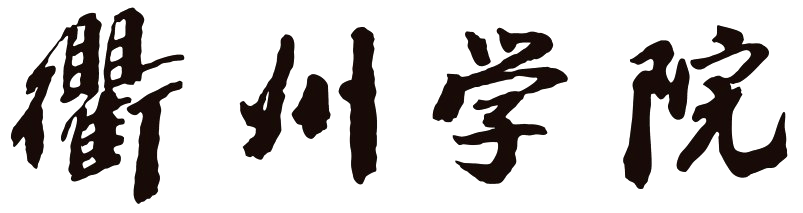 衢州学院